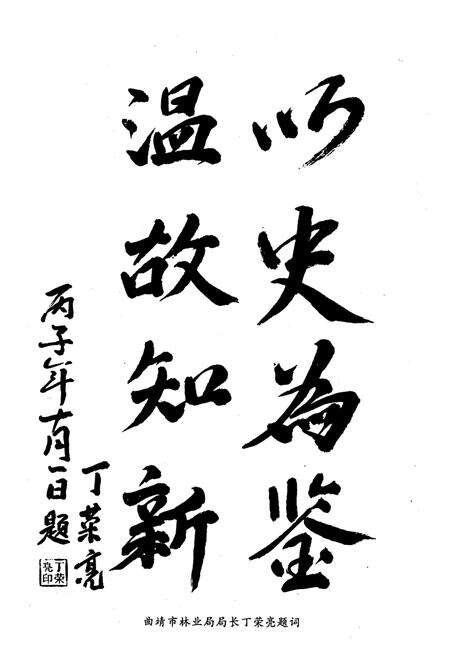 以史為鉴
温故知新
丙子年十月一日題
丁荣亮
丁荣亮印
曲靖市林业局局长丁荣亮题词